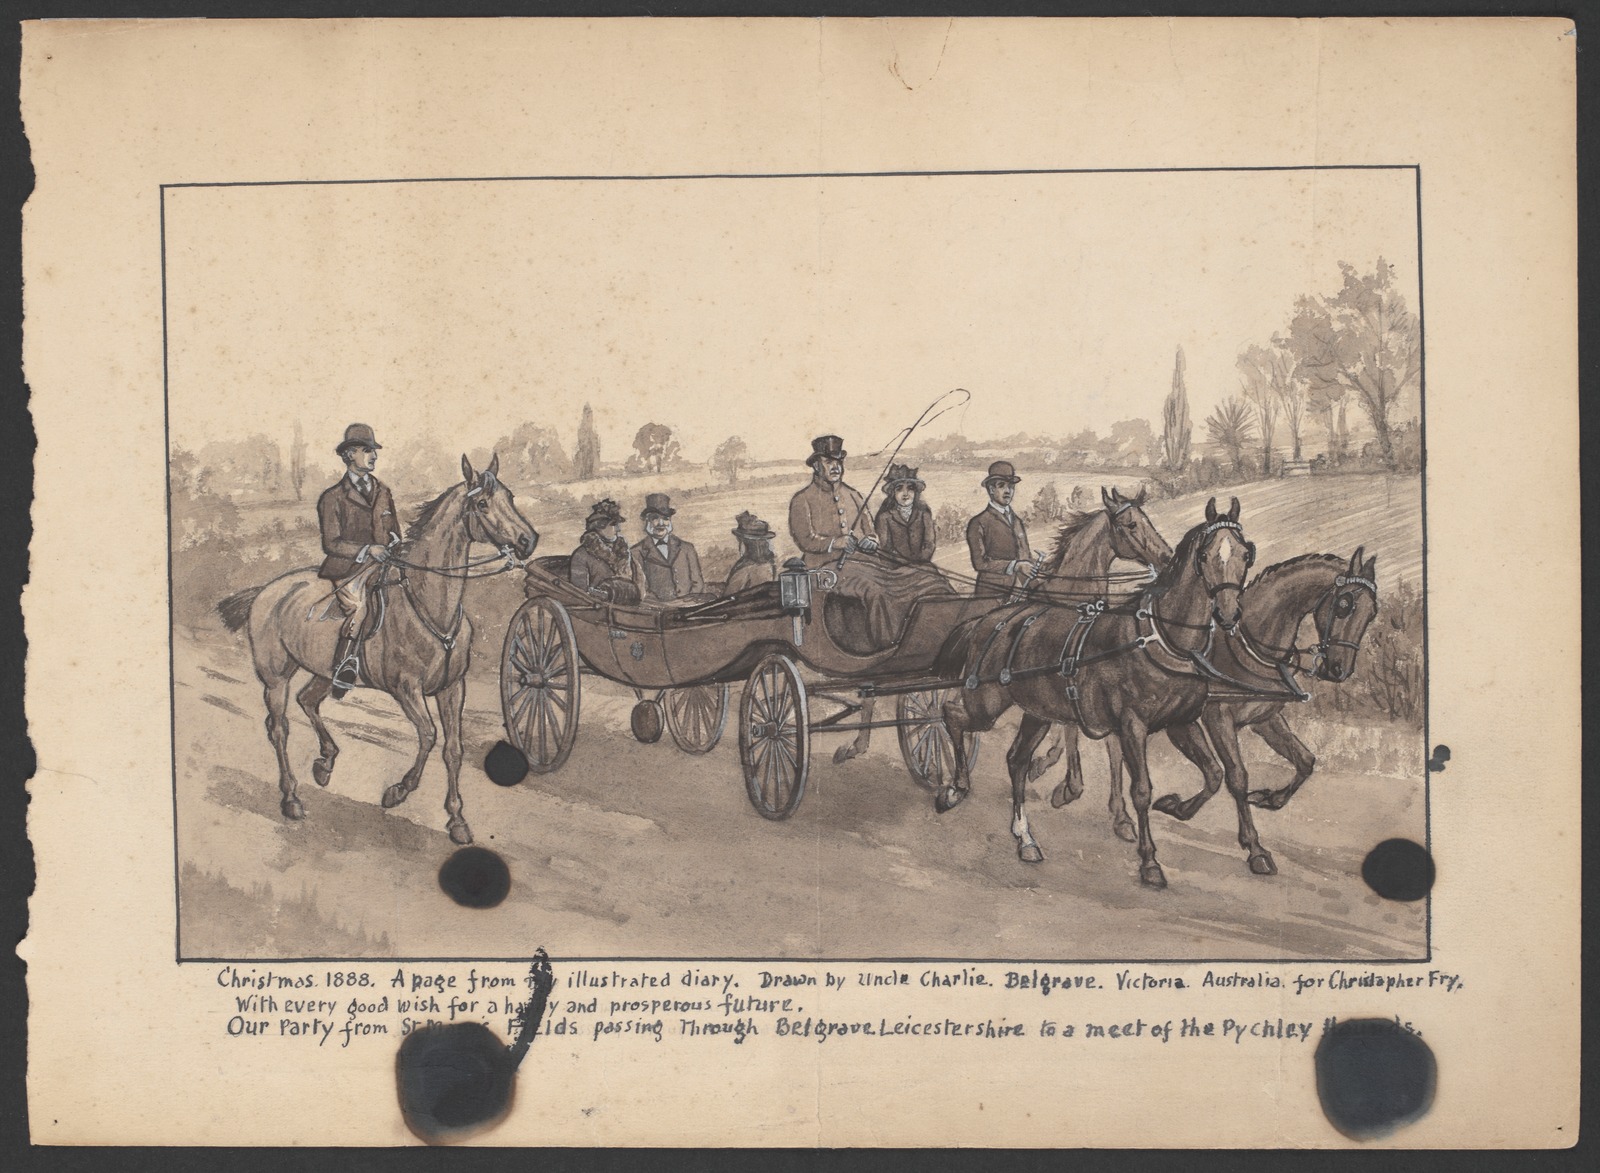 Christmas. 1888. A page from my illustrated diary. Drawn by Uncle Charlie. Belgrave. Victoria. Australia. for Christapher Fry.
With every good wish for a happy and prosperous future.
Our Party from St Fields passing Through Belgrave Leicestershire to a meet of the Pychley Hounds.